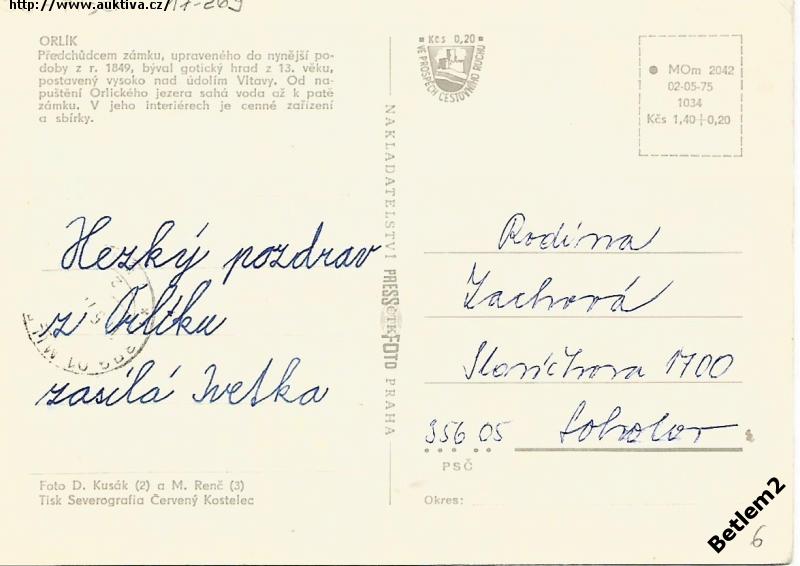 http://www.auktiva.cz/
ORLÍK
Předchůdcem zámku, upraveného do nynější po-
doby z r. 1849, býval gotický hrad z 13. věku,
postavený vysoko nad údolím Vltavy. Od na-
puštění Orlického jezera sahá voda až k patě
zámku. V jeho interiérech je cenné zařízení
a sbírky.
Kčs 0,20
VE PROSPĚCH CESTOVNÍHO RUCHU
MOm 2042
02-05-75
1034
Kčs 1,40+0,20
Hezký pozdrav
z Orlíku
zasílá Ivetka
NAKLADATELSTVÍ PRESSČTKFOTO PRAHA
Rodina
Zachová
1700
356 05 Sokolov
PSČ
Okres:
Foto D. Kusák (2) a M. Renč (3)
Tisk Severografia Červený Kostelec
Betlem2
6